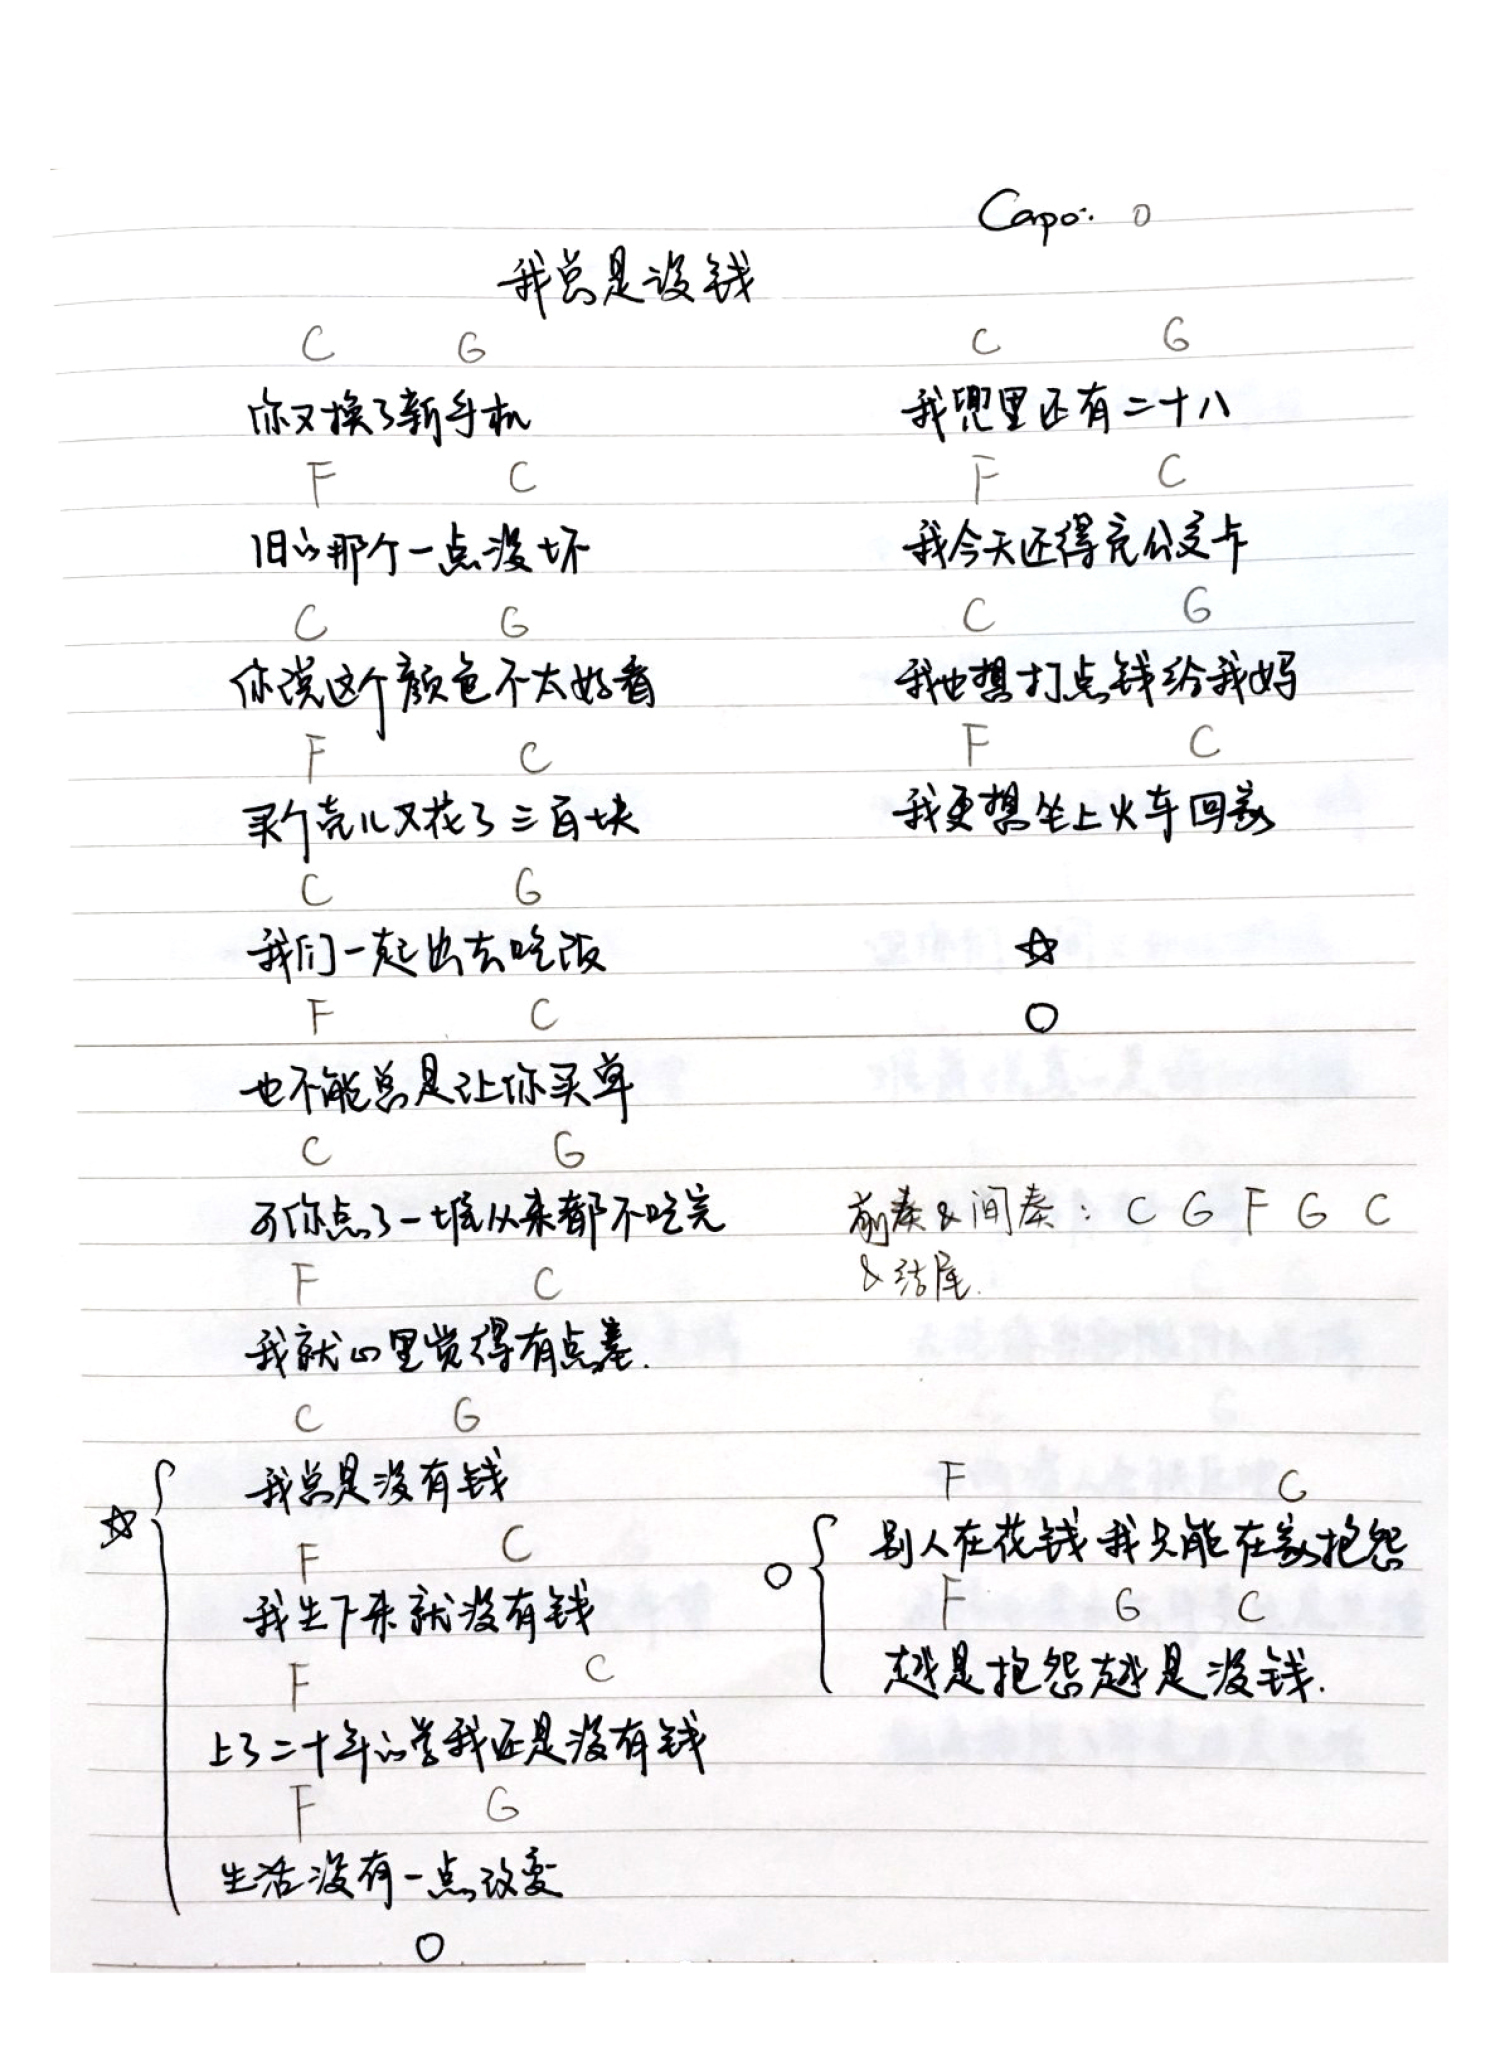 Capo: 0
我总是没钱
C G
你又换了新手机
F C
旧的那个一点没坏
C G
你说这个颜色不太好看
F C
买个壳儿又花了三百块
C G
我们一起出去吃饭
F C
也不能总是让你买单
C G
可你点了一堆从来都不吃完
F C
我就心里觉得有点羞.
C G
我总是没有钱
F C
我生下来就没有钱
F C
上了二十年的学我还是没有钱
F G
生活没有一点改变
C G
我兜里还有二十八
F C
我今天还得充公交卡
C G
我也想打点钱给我妈
F C
我更想坐上火车回家
前奏&间奏: C G F G C
&结尾.
F C
别人在花钱我只能在家抱怨
F G C
越是抱怨越是没钱.